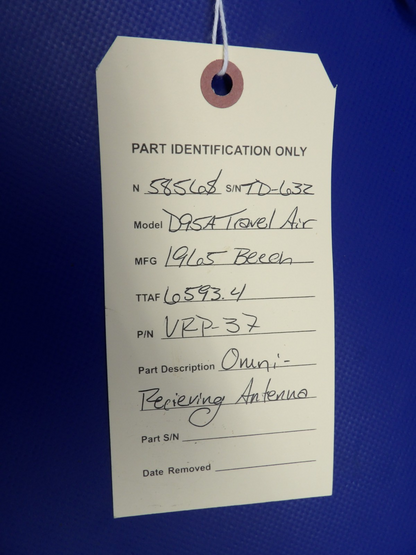 PART IDENTIFICATION ONLY
N 5856S S/N TD-632
Model D95A Travel Air
MFG 1965 Beech
TTAF 6593.4
P/N VRP-37
Part Description Omni-
Recieving Antenna
Part S/N
Date Removed